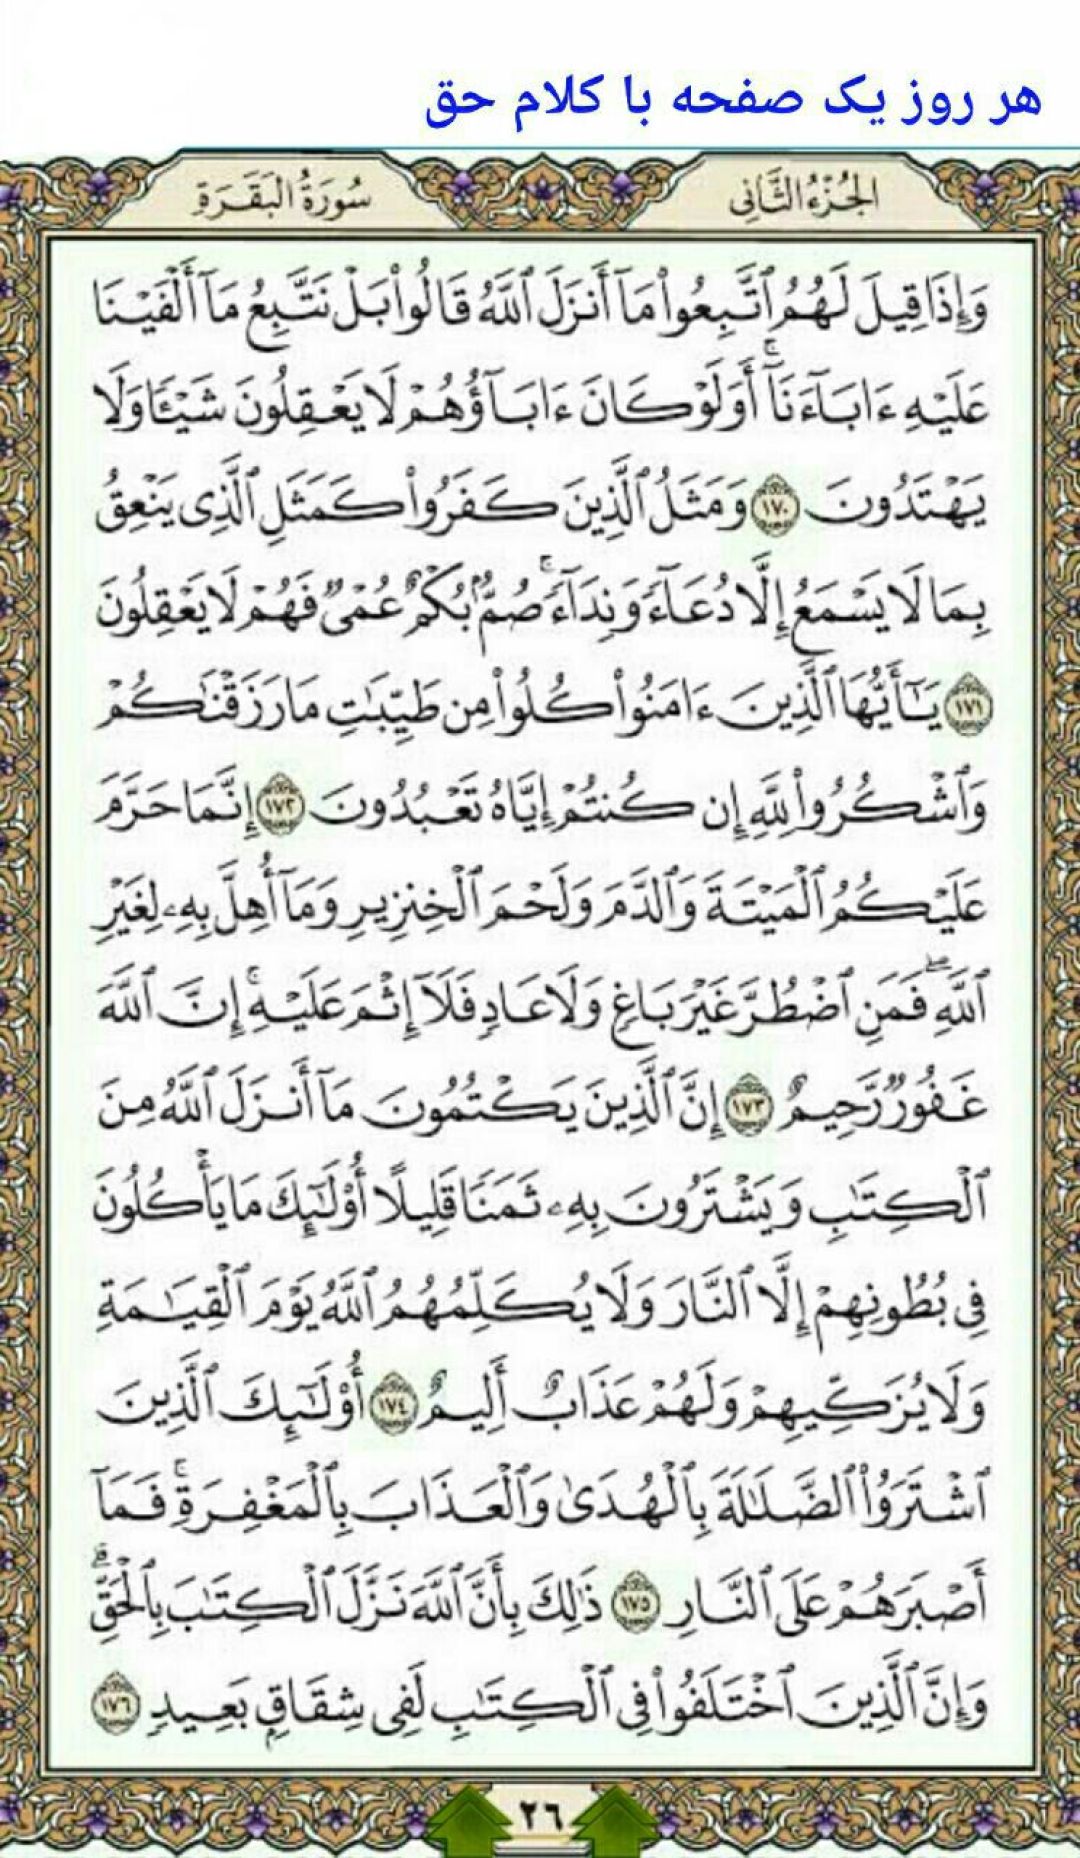 هر روز یک صفحه با کلام حق
الجُزْءُ الثَّانِي
سُورَةُ البَقَرَةِ
وَإِذَا قِيلَ لَهُمُ ٱتَّبِعُوا۟ مَآ أَنزَلَ ٱللَّهُ قَالُوا۟ بَلْ نَتَّبِعُ مَآ أَلْفَيْنَا
عَلَيْهِ ءَابَآءَنَآ ۚ أَوَلَوْ كَانَ ءَابَآؤُهُمْ لَا يَعْقِلُونَ شَيْـًٔا وَلَا
يَهْتَدُونَ ١٧٠ وَمَثَلُ ٱلَّذِينَ كَفَرُوا۟ كَمَثَلِ ٱلَّذِى يَنْعِقُ
بِمَا لَا يَسْمَعُ إِلَّا دُعَآءً وَنِدَآءً ۚ صُمٌّۢ بُكْمٌ عُمْىٌ فَهُمْ لَا يَعْقِلُونَ
١٧١ يَـٰٓأَيُّهَا ٱلَّذِينَ ءَامَنُوا۟ كُلُوا۟ مِن طَيِّبَـٰتِ مَا رَزَقْنَـٰكُمْ
وَٱشْكُرُوا۟ لِلَّهِ إِن كُنتُمْ إِيَّاهُ تَعْبُدُونَ ١٧٢ إِنَّمَا حَرَّمَ
عَلَيْكُمُ ٱلْمَيْتَةَ وَٱلدَّمَ وَلَحْمَ ٱلْخِنزِيرِ وَمَآ أُهِلَّ بِهِۦ لِغَيْرِ
ٱللَّهِ ۖ فَمَنِ ٱضْطُرَّ غَيْرَ بَاغٍ وَلَا عَادٍ فَلَآ إِثْمَ عَلَيْهِ ۚ إِنَّ ٱللَّهَ
غَفُورٌ رَّحِيمٌ ١٧٣ إِنَّ ٱلَّذِينَ يَكْتُمُونَ مَآ أَنزَلَ ٱللَّهُ مِنَ
ٱلْكِتَـٰبِ وَيَشْتَرُونَ بِهِۦ ثَمَنًا قَلِيلًا أُو۟لَـٰٓئِكَ مَا يَأْكُلُونَ
فِى بُطُونِهِمْ إِلَّا ٱلنَّارَ وَلَا يُكَلِّمُهُمُ ٱللَّهُ يَوْمَ ٱلْقِيَـٰمَةِ
وَلَا يُزَكِّيهِمْ وَلَهُمْ عَذَابٌ أَلِيمٌ ١٧٤ أُو۟لَـٰٓئِكَ ٱلَّذِينَ
ٱشْتَرَوُا۟ ٱلضَّلَـٰلَةَ بِٱلْهُدَىٰ وَٱلْعَذَابَ بِٱلْمَغْفِرَةِ ۚ فَمَآ
أَصْبَرَهُمْ عَلَى ٱلنَّارِ ١٧٥ ذَٰلِكَ بِأَنَّ ٱللَّهَ نَزَّلَ ٱلْكِتَـٰبَ بِٱلْحَقِّ ۗ
وَإِنَّ ٱلَّذِينَ ٱخْتَلَفُوا۟ فِى ٱلْكِتَـٰبِ لَفِى شِقَاقٍۭ بَعِيدٍ ١٧٦
٢٦